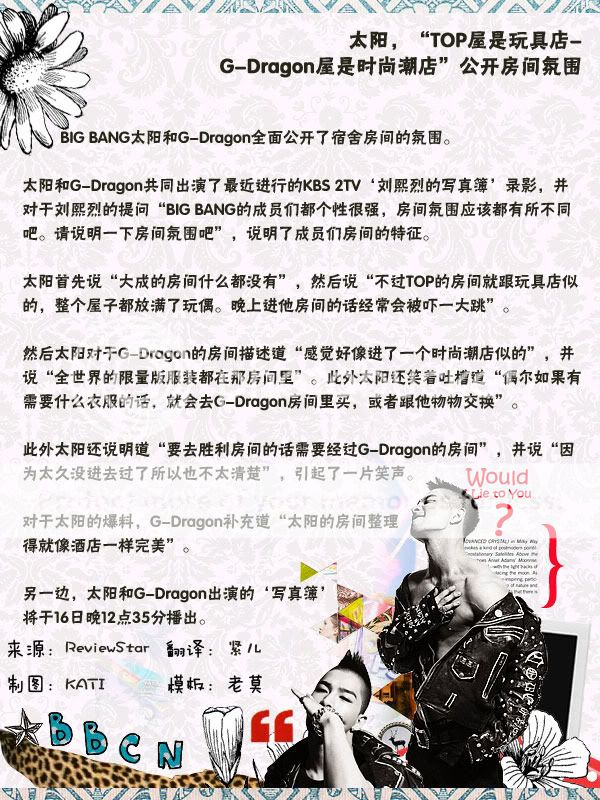 太阳，“TOP屋是玩具店-
G-Dragon屋是时尚潮店”公开房间氛围
BIG BANG太阳和G-Dragon全面公开了宿舍房间的氛围。
太阳和G-Dragon共同出演了最近进行的KBS 2TV‘刘熙烈的写真簿’录影，并
对于刘熙烈的提问“BIG BANG的成员们都个性很强，房间氛围应该都有所不同
吧。请说明一下房间氛围吧”，说明了成员们房间的特征。
太阳首先说“大成的房间什么都没有”，然后说“不过TOP的房间就跟玩具店似
的，整个屋子都放满了玩偶。晚上进他房间的话经常会被吓一大跳”。
然后太阳对于G-Dragon的房间描述道“感觉好像进了一个时尚潮店似的”，并
说“全世界的限量版服装都在那房间里”。此外太阳还笑着吐槽道“偶尔如果有
需要什么衣服的话，就会去G-Dragon房间里买，或者跟他物物交换”。
此外太阳还说明道“要去胜利房间的话需要经过G-Dragon的房间”，并说“因
为太久没进去过了所以也不太清楚”，引起了一片笑声。
Would
Lie to You
?
对于太阳的爆料，G-Dragon补充道“太阳的房间整理
得就像酒店一样完美”。
另一边，太阳和G-Dragon出演的‘写真簿’
将于16日晚12点35分播出。
来源：ReviewStar 翻译：紧儿
制图：KATI 模板：老莫
BBCN